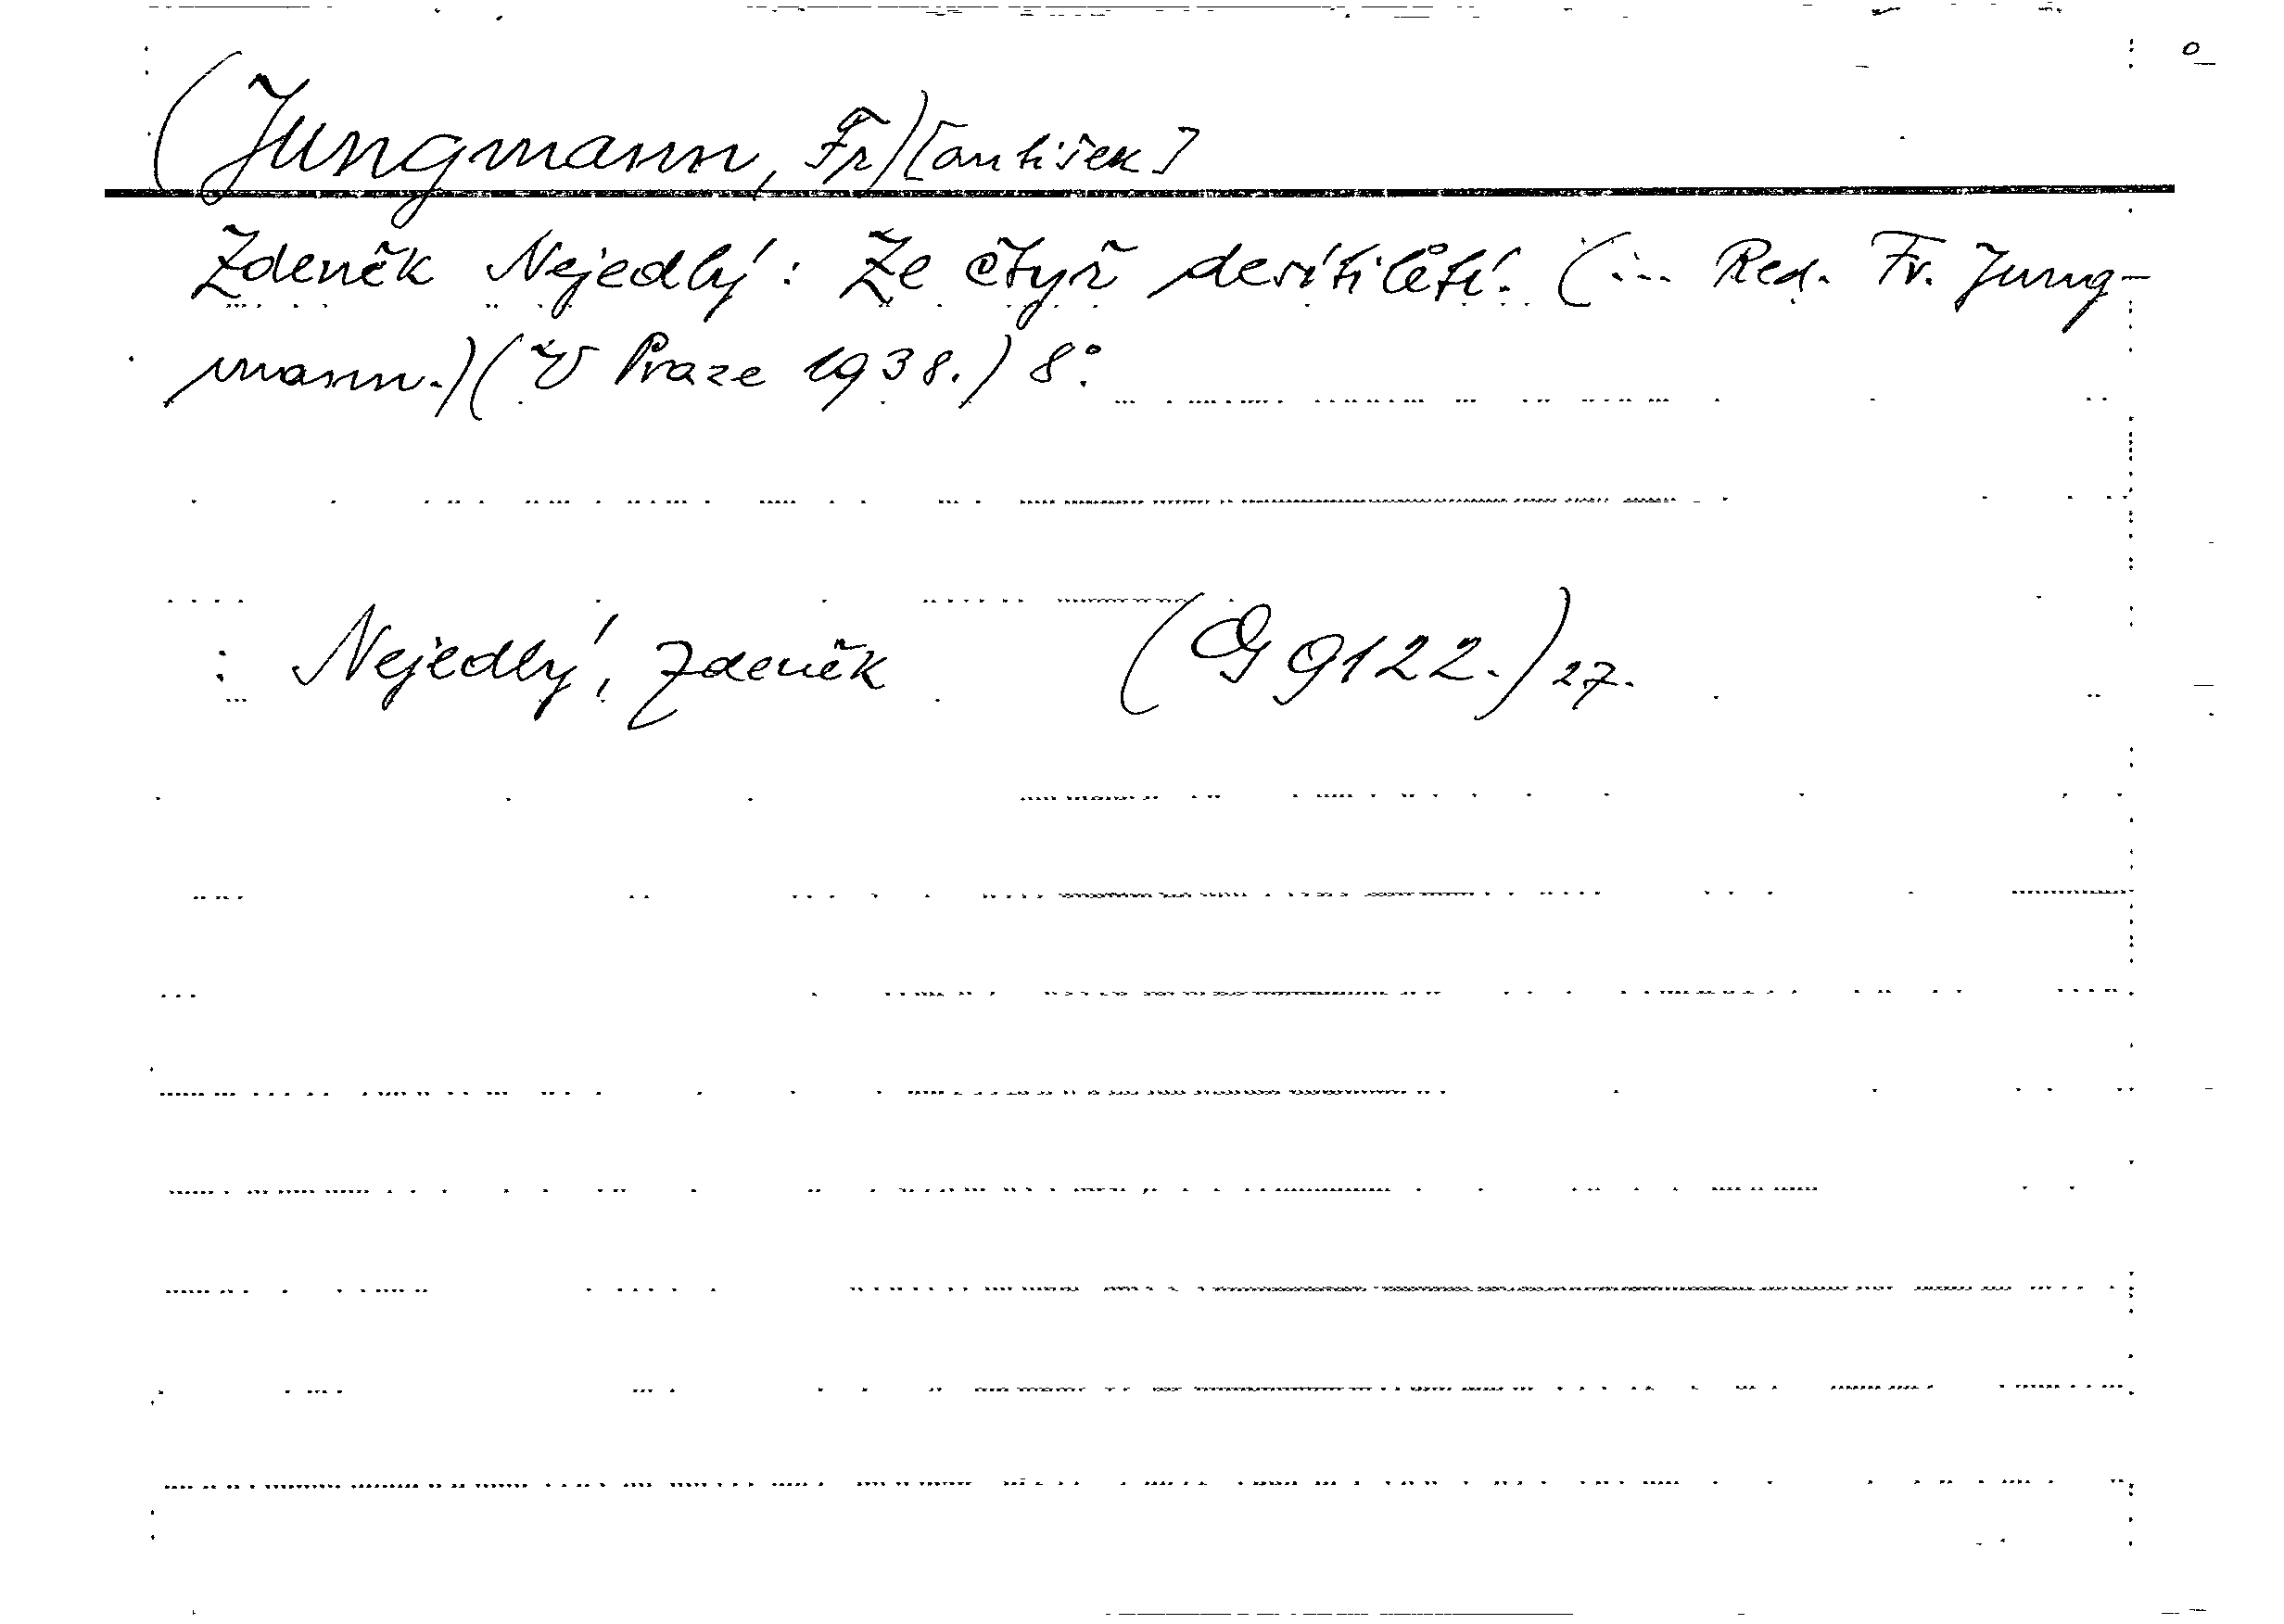 (Jungmann, Fr)[antišek]
Zdeněk Nejedlý: Ze čtyř desítiletí. (... Red. Fr. Jung-
mann.) (V Praze 1938.) 8°.
: Nejedlý, Zdeněk (G 9122.) 27.